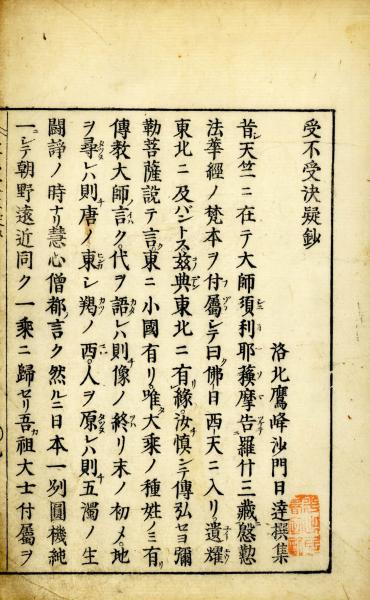 受不受決疑鈔
洛北鷹峰沙門日達撰集
昔シ天竺ニ在テ大師須利耶蘓摩告羅什三藏慇懃
法華經ノ梵本ヲ付屬シテ曰佛日西天ニ入リ遺耀
東北ニ及ハントス茲典東北ニ有緣汝愼ンテ傳弘セヨ彌
勒菩薩説テ言ク東ニ小國有リ唯大乘ノ種姓ノミ有リ
傳教大師ノ言ク代ヲ語レハ則像ノ終リ末ノ初メ地
ヲ尋レハ則唐ノ東シ羯ノ西人ヲ原レハ則五濁ノ生
鬪諍ノ時ナリ慧心僧都ノ言ク然ルニ日本一列圓機純
一ニシテ朝野遠近同ク一乘ニ歸セリ吾カ祖大士付屬ヲ